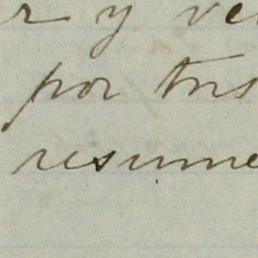 r y ve
por tus
resume